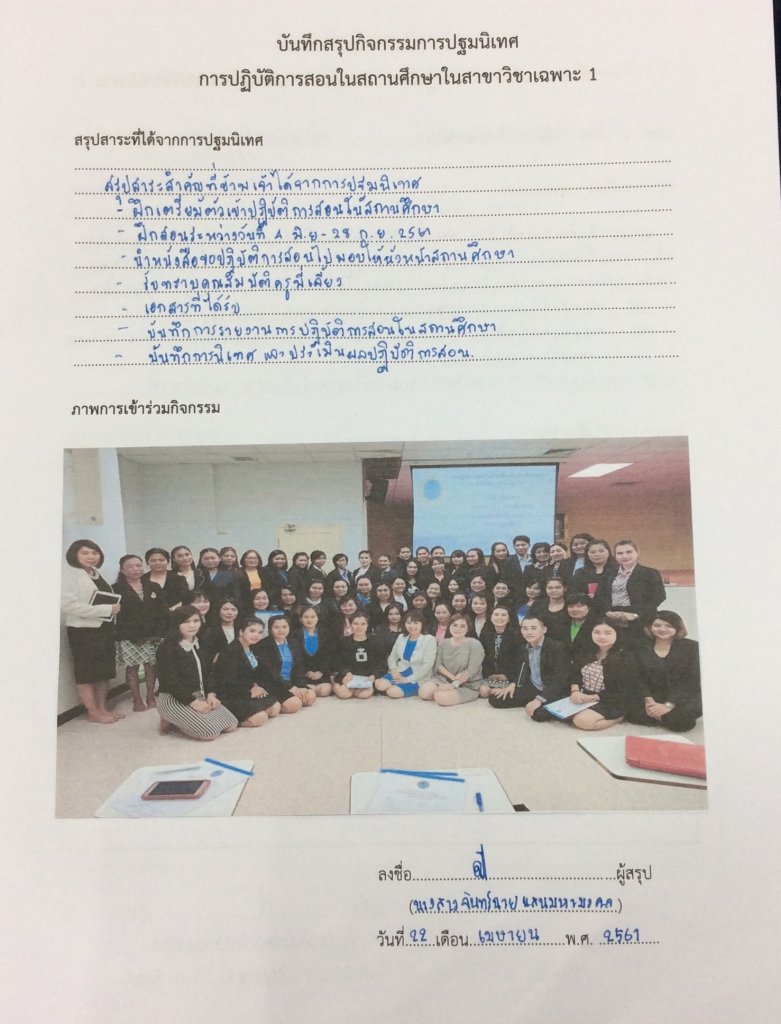 บันทึกสรุปกิจกรรมการปฐมนิเทศ
การปฏิบัติการสอนในสถานศึกษาในสาขาวิชาเฉพาะ 1
สรุปสาระที่ได้จากการปฐมนิเทศ
สรุปสาระสำคัญที่ข้าพเจ้าได้จากการปฐมนิเทศ
- ฝึกเตรียมตัวเข้าปฏิบัติการสอนในสถานศึกษา
- ฝึกสอนระหว่างวันที่ 4 มิ.ย - 28 ก.ย. 2561
- นำหนังสือขอปฏิบัติการสอนไปมอบให้หัวหน้าสถานศึกษา
- รับทราบคุณสมบัติครูพี่เลี้ยง
- เอกสารที่ได้รับ
- บันทึกการรายงานการปฏิบัติการสอนในสถานศึกษา
- บันทึกการนิเทศ และประเมินผลปฏิบัติการสอน.
ภาพการเข้าร่วมกิจกรรม
ลงชื่อ ผู้สรุป
(นางสาวจันทร์ฉาย แสนมหามงคล)
วันที่ 22 เดือน เมษายน พ.ศ. 2561